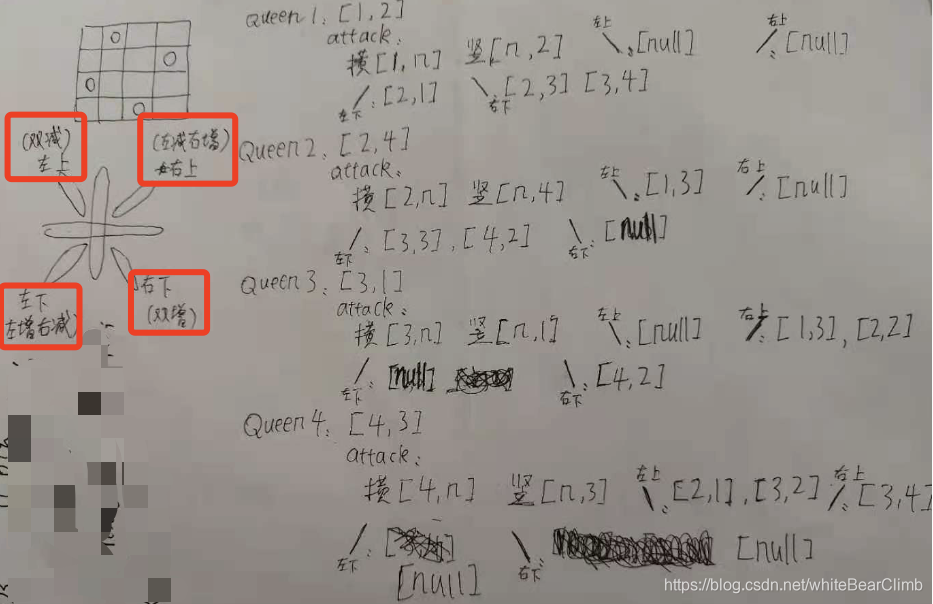 Queen 1: [1,2]
attack:
横[1,n] 竖[n,2] 左上: [null] 右上: [null]
左下: [2,1] 右下: [2,3] [3,4]
(双减)
左上
(左减右增)
右上
Queen 2: [2,4]
attack:
横[2,n] 竖[n,4] 左上: [1,3] 右上: [null]
左下: [3,3], [4,2] 右下: [null]
左下
左增右减)
右下
(双增)
Queen 3: [3,1]
attack:
横[3,n] 竖[n,1] 左上: [null] 右上: [1,3], [2,2]
左下: [null] 右下: [4,2]
Queen 4: [4,3]
attack:
横[4,n] 竖[n,3] 左上: [2,1], [3,2] 右上: [3,4]
左下: [null] 右下: [null]
https://blog.csdn.net/whiteBearClimb